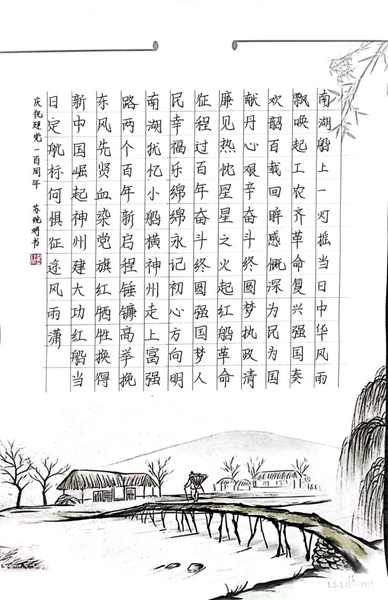 南湖船上一灯摇当日中华风雨
飘唤起工农齐革命复兴强国奏
欢韶百载回眸感慨深为民为国
献丹心艰辛奋斗终圆梦执政清
廉见热忱星星之火起红船革命
征程过百年奋斗终圆强国梦人
民幸福乐绵绵永记初心方向明
南湖犹忆小船横神州走上富强
路两个百年新启程锤镰高举挽
东风先贤血染党旗红牺牲换得
新中国崛起神州建大功红船当
日定航标何惧征途风雨潇
庆祝建党一百周年 苏 书